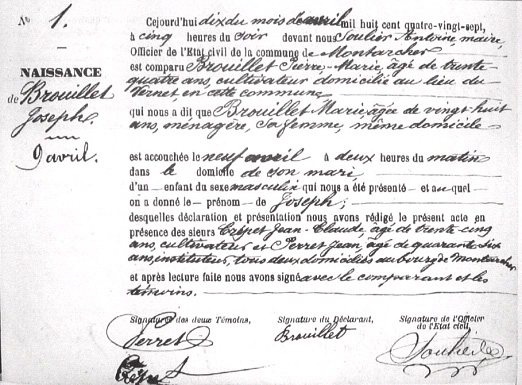 N° 1.
NAISSANCE
de Brouillet
Joseph.
9 avril.
Cejourd'hui dix du mois de avril mil huit cent quatre-vingt-sept,
à cinq heures du soir devant nous Soulier Antoine, maire,
Officier de l'Etat civil de la commune de Montarcher
est comparu Brouillet Pierre-Marie, âgé de trente
quatre ans, cultivateur domicilié au lieu du
Vernet, en cette commune
qui nous a dit que Brouillet Marie, âgée de vingt-huit
ans, ménagère, sa femme, même domicile
est accouchée le neuf avril à deux heures du matin
dans le domicile de son mari,
d'un enfant du sexe masculin qui nous a été présenté et auquel
on a donné le prénom de Joseph;
desquelles déclaration et présentation nous avons rédigé le présent acte en
présence des sieurs Crépet Jean-Claude, âgé de trente cinq
ans, cultivateur et Perret Jean, âgé de quarante six
ans, instituteur, tous deux domiciliés au bourg de Montarcher
et après lecture faite nous avons signé avec le comparant et les
témoins.
Signatures des deux Témoins, Signature du Déclarant, Signature de l'Officier
de l'Etat civil,
Perret Brouillet
Crépet